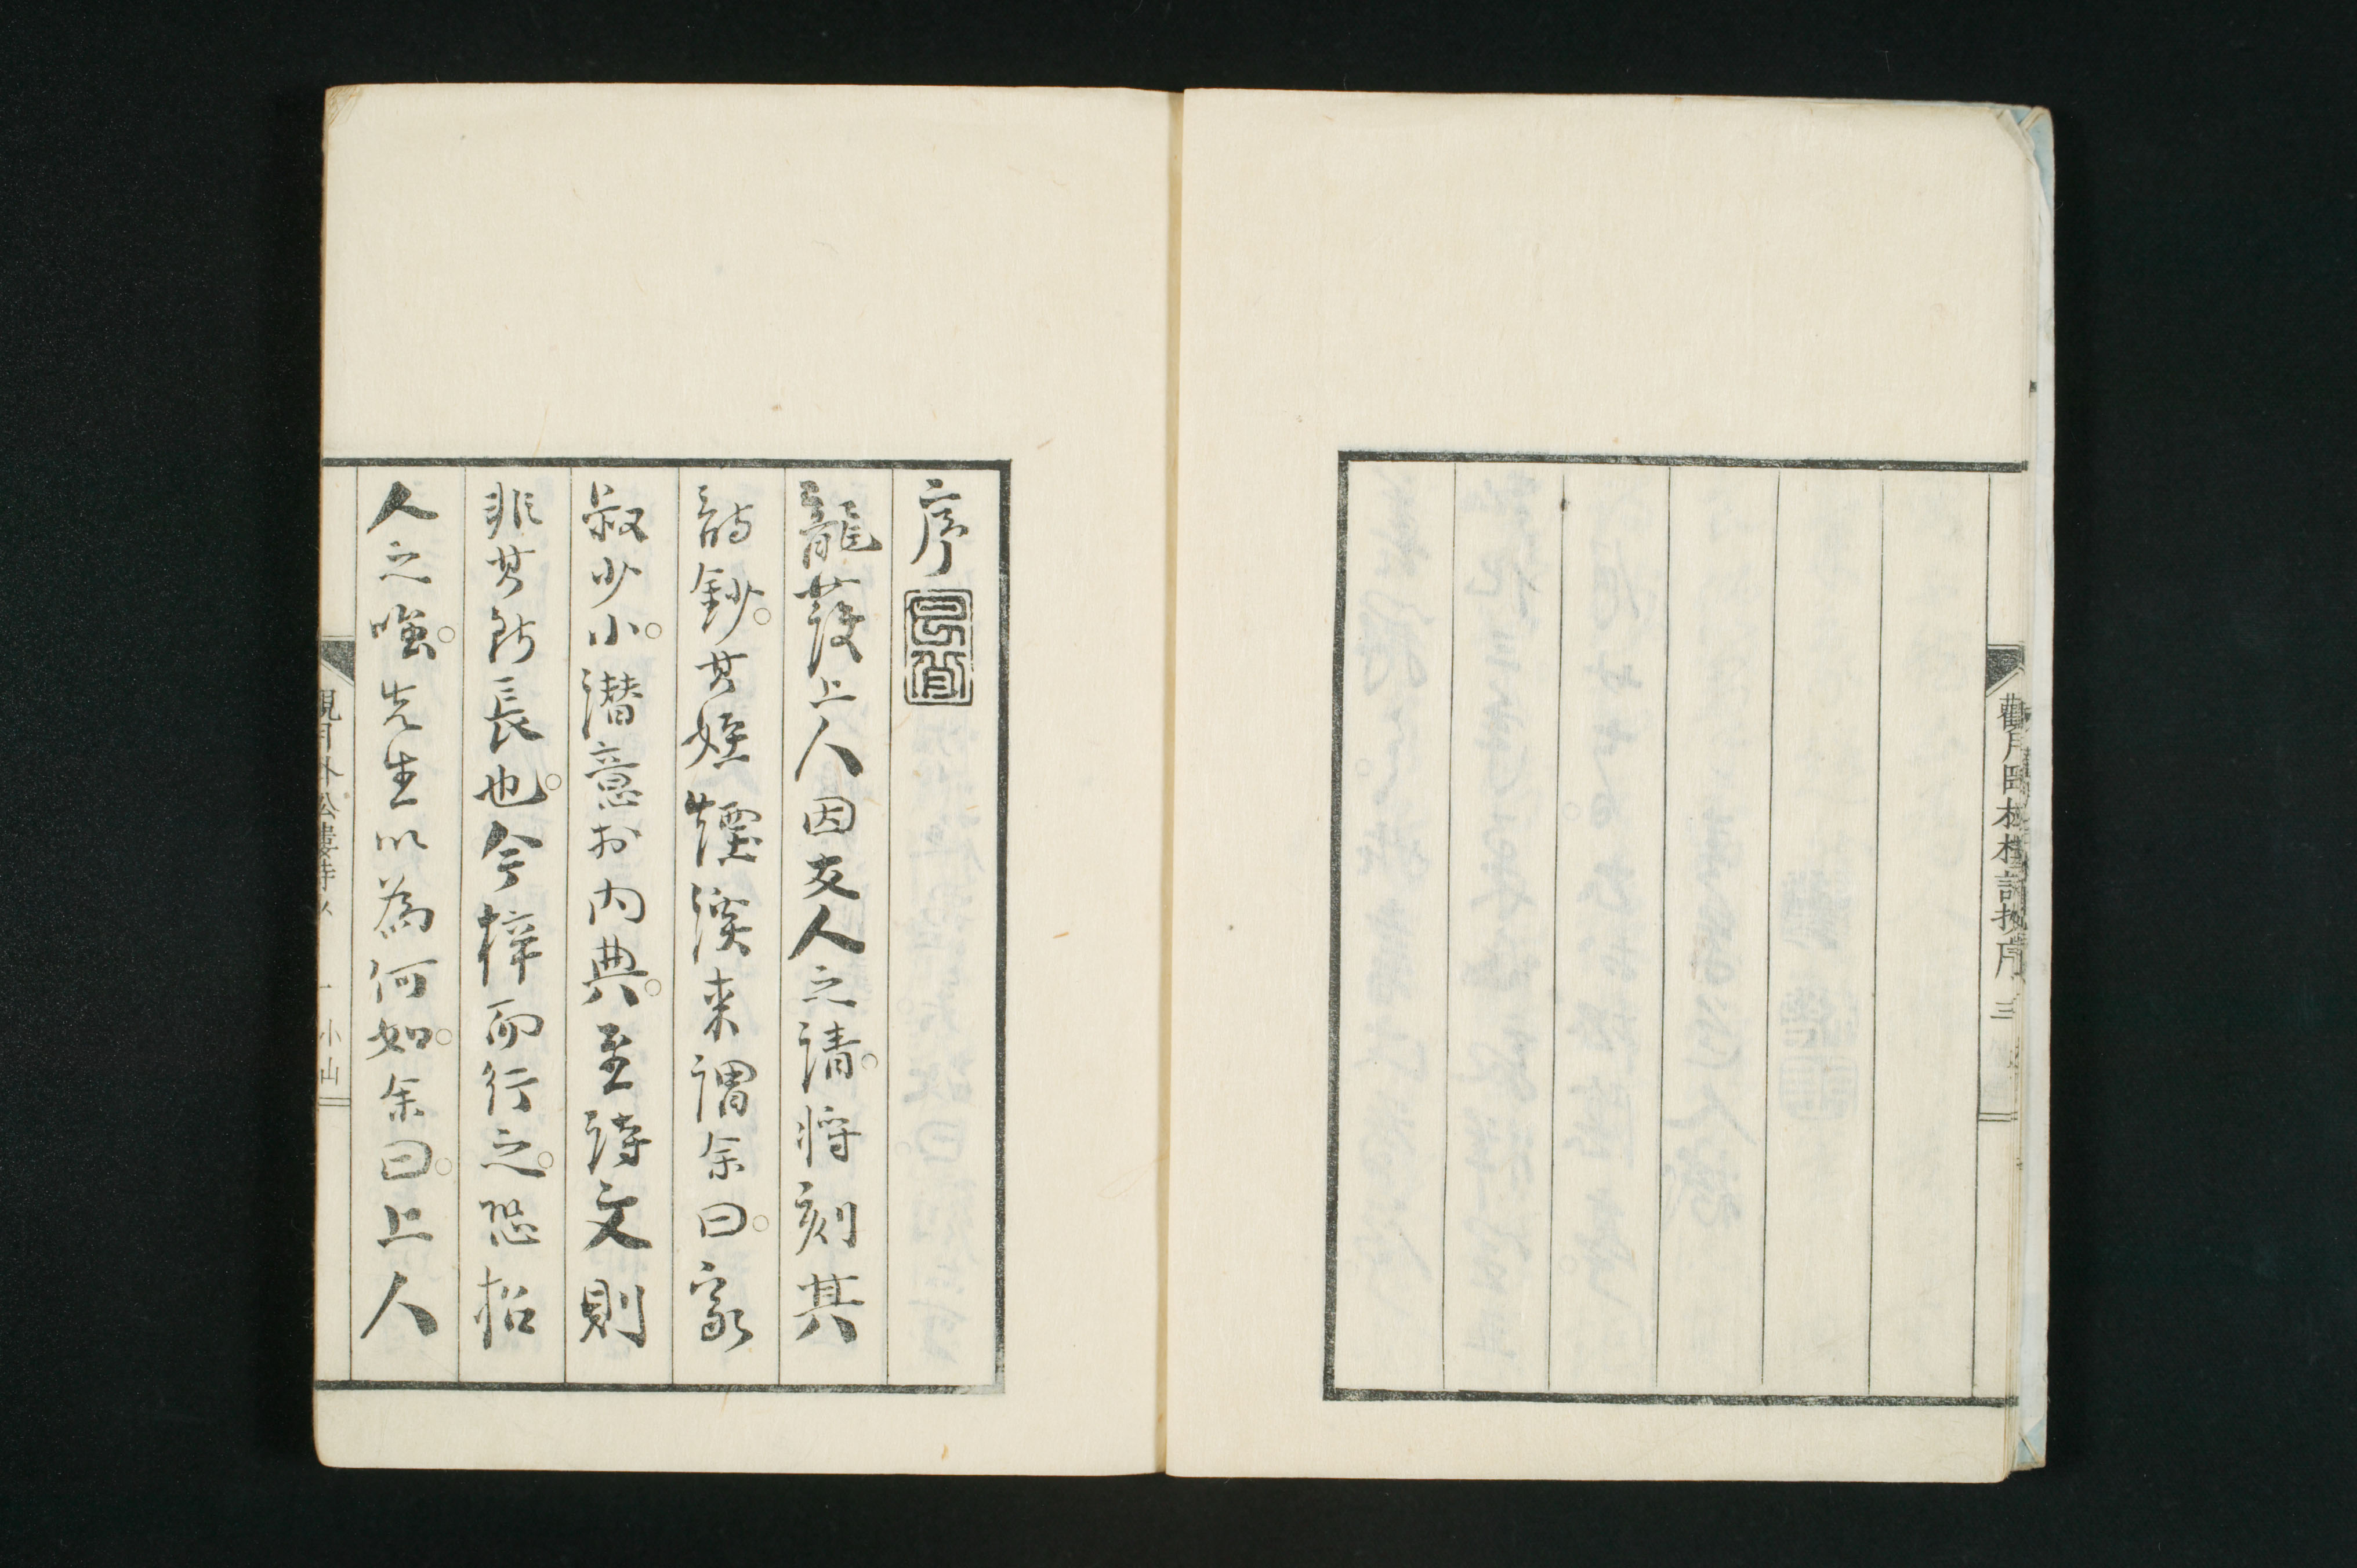 觀月臥松樓詩抄序 三
序
龍護上人因友人之請。將刻其
詩鈔。其姪煙溪来謂余曰。家
叔少小。潜意於内典。至詩文則
非其所長也。今梓而行之。恐招
人之嗤。先生以為何如。余曰。上人
一 小山